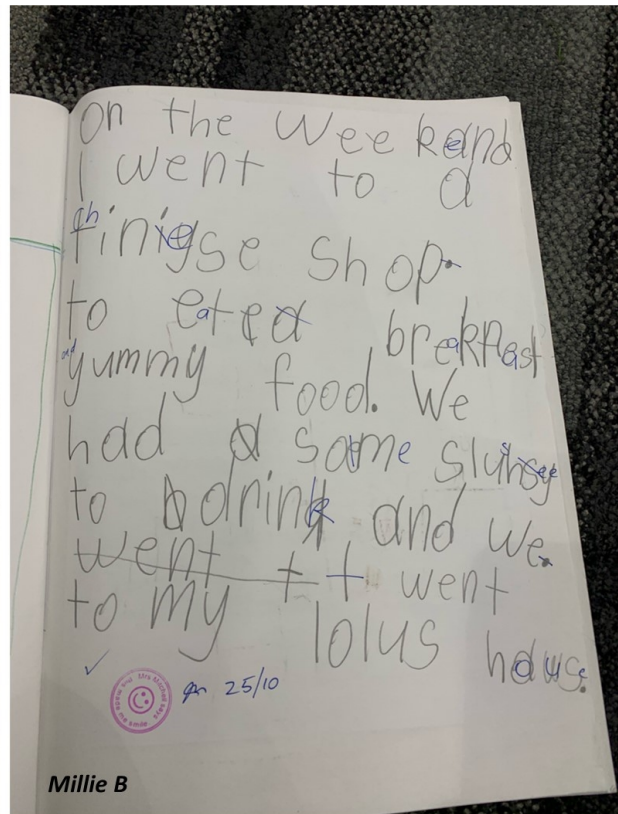 On the Weekend
I went to a
chinese shop.
to eat breakfast
and yummy food. We
had some slushy
to drink and we
went t t went
to my lolus house.
25/10
Millie B